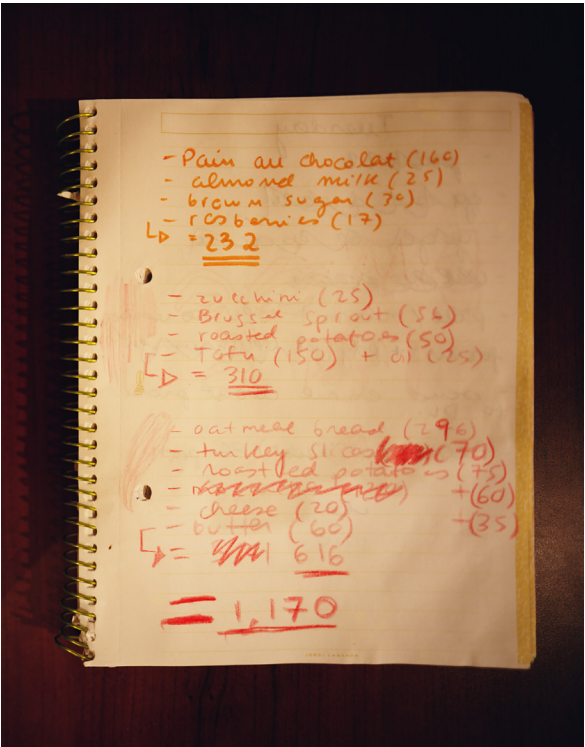 - Pain au chocolat (160)
- almond milk (25)
- brown sugar (30)
- rasberries (17)
= 232
- zucchini (25)
- Brussel sprout (56)
- roasted potatoes (50)
- Tofu (150) + oil (25)
= 310
- oatmeal bread (296)
- turkey slices (70)
- roasted potatoes (75)
+(60)
- cheese (20)
- butter (60) +(35)
= 616
= 1,170